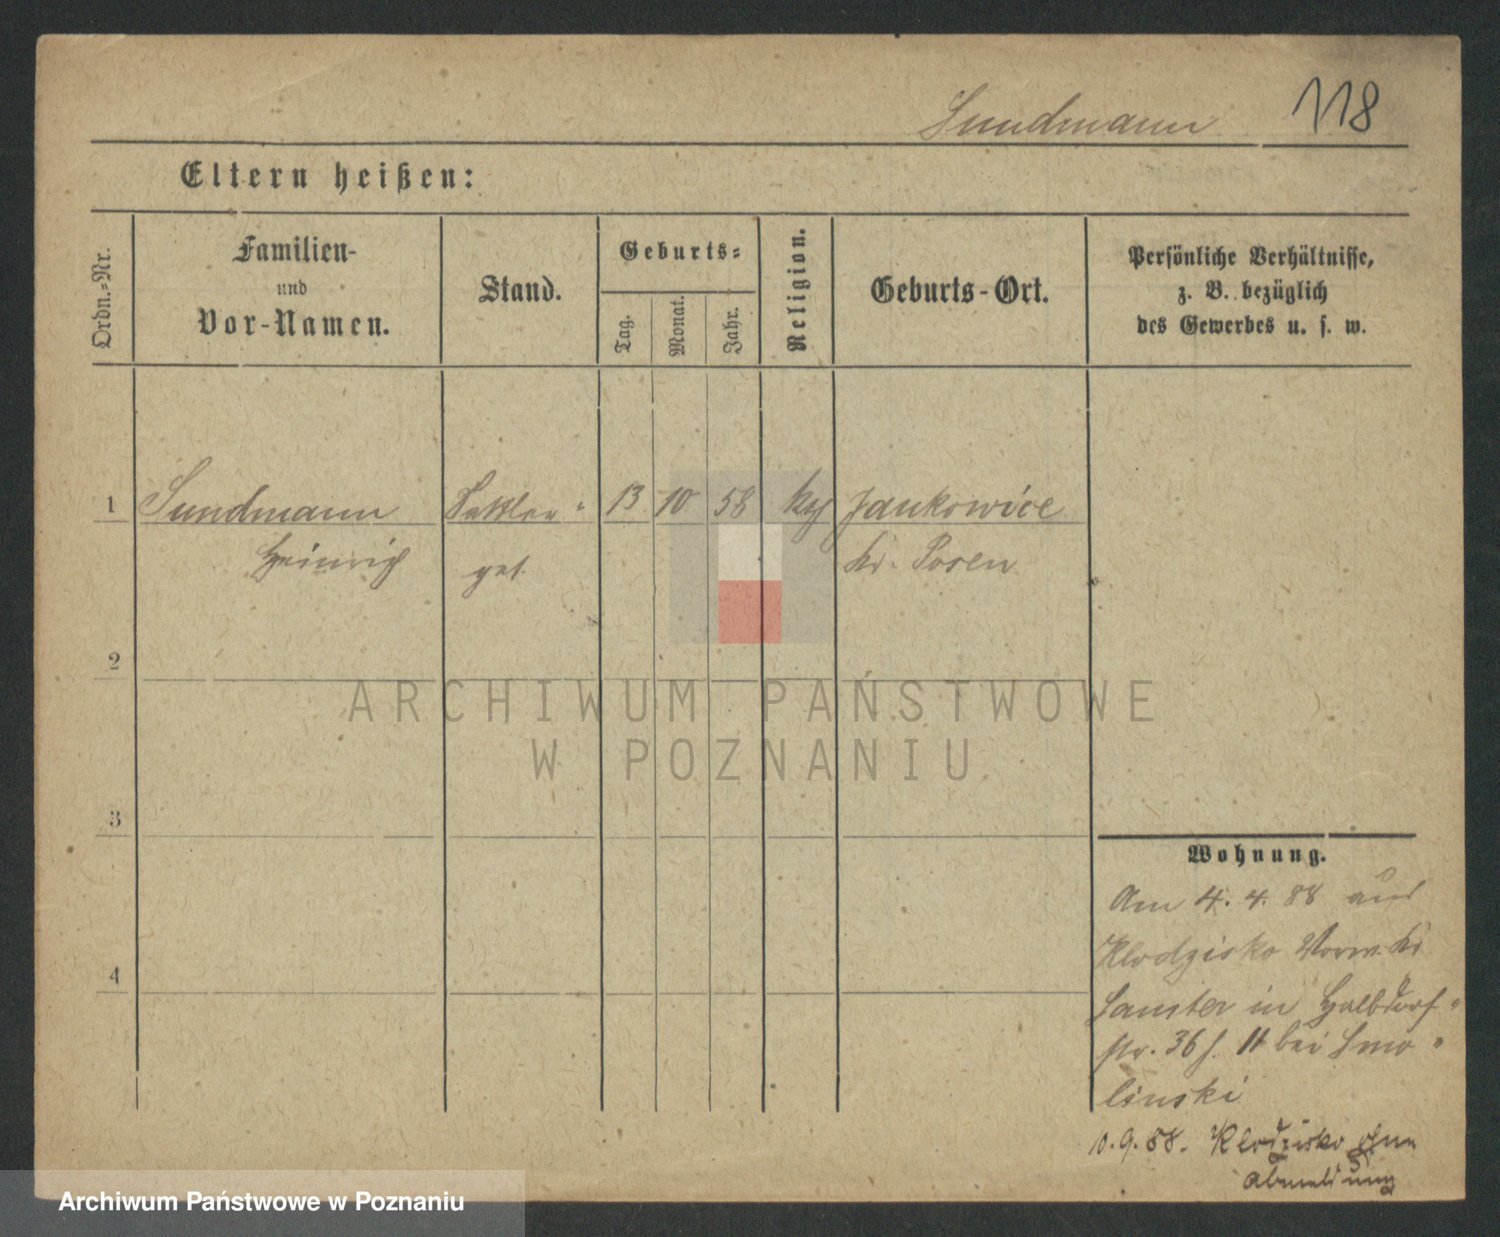 Sundmann 118
Eltern heißen:
Ordn.-Nr.
Familien-
und
Vor-Namen.
Stand.
Geburts-
Tag.
Monat.
Jahr.
Religion.
Geburts-Ort.
Persönliche Verhältnisse,
z. B. bezüglich
des Gewerbes u. s. w.
1 Sundmann Sattler- 13 10 58 Jankowice
Heinrich ges. Kr. Posen
2
3
4
Wohnung.
Am 4. 4. 88 aus
Klodzisko Vorw. Kr
Samter in Halbdorf-
str. 36 II bei Smo-
linski
10. 9. 88. Klodzisko ohne
Abmeldung
ARCHIWUM PAŃSTWOWE
W POZNANIU
Archiwum Państwowe w Poznaniu